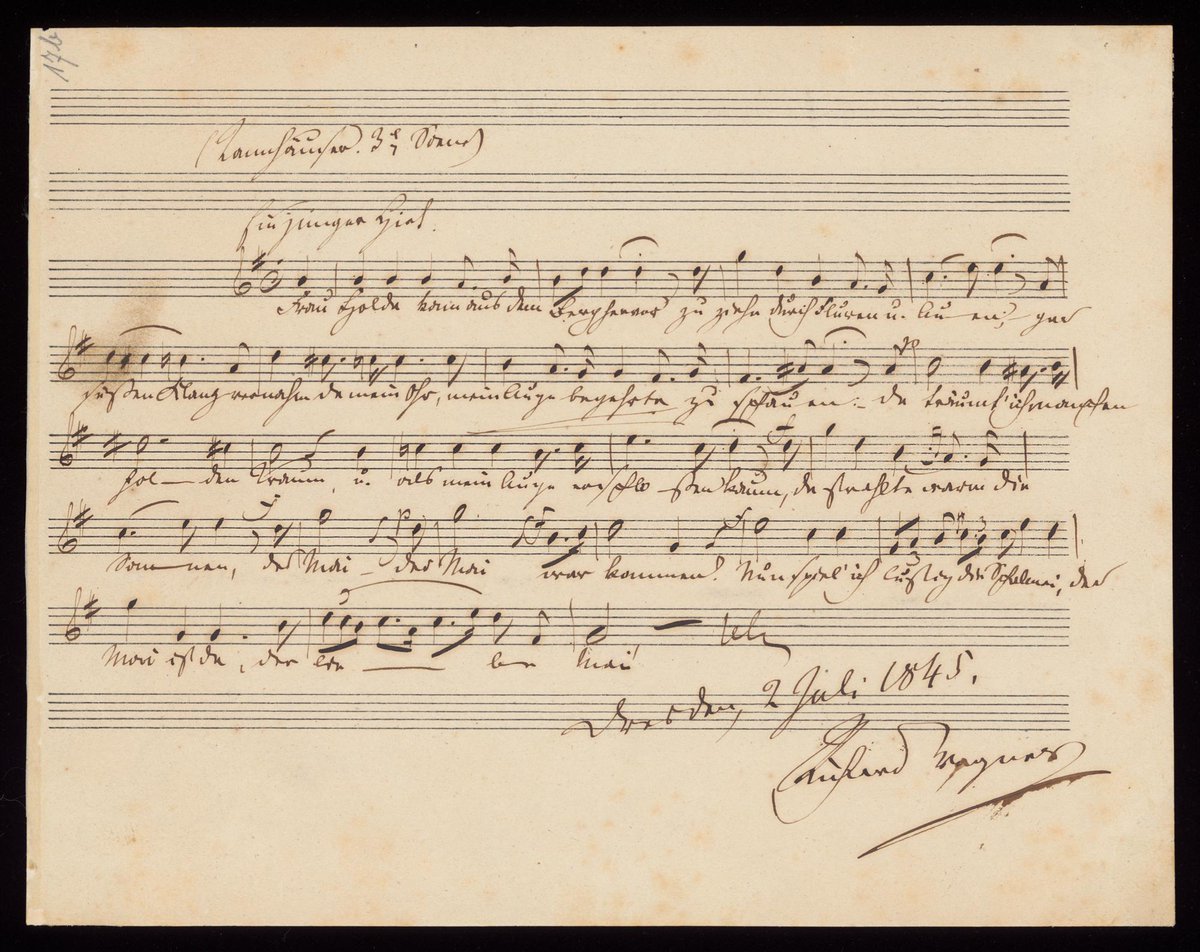 17b
(Tannhäuser. 3e Scene)
Ein junger Hirt.
Frau Holda kam aus dem Berg hervor zu ziehn durch Fluren u. Au - en; gar
süßen Klang vernahm da mein Ohr, mein Auge begehrte zu schau - en: - da träumt' ich manchen
hol - den Traum, u. als mein Aug' erschlo - ssen kaum, da strahlte warm die
Son - nen, der Mai - der Mai war kommen! Nun spiel' ich lustig die Schalmei, der
Mai ist da, der lie - be Mai
Dresden, 2 Juli 1845.
Richard Wagner